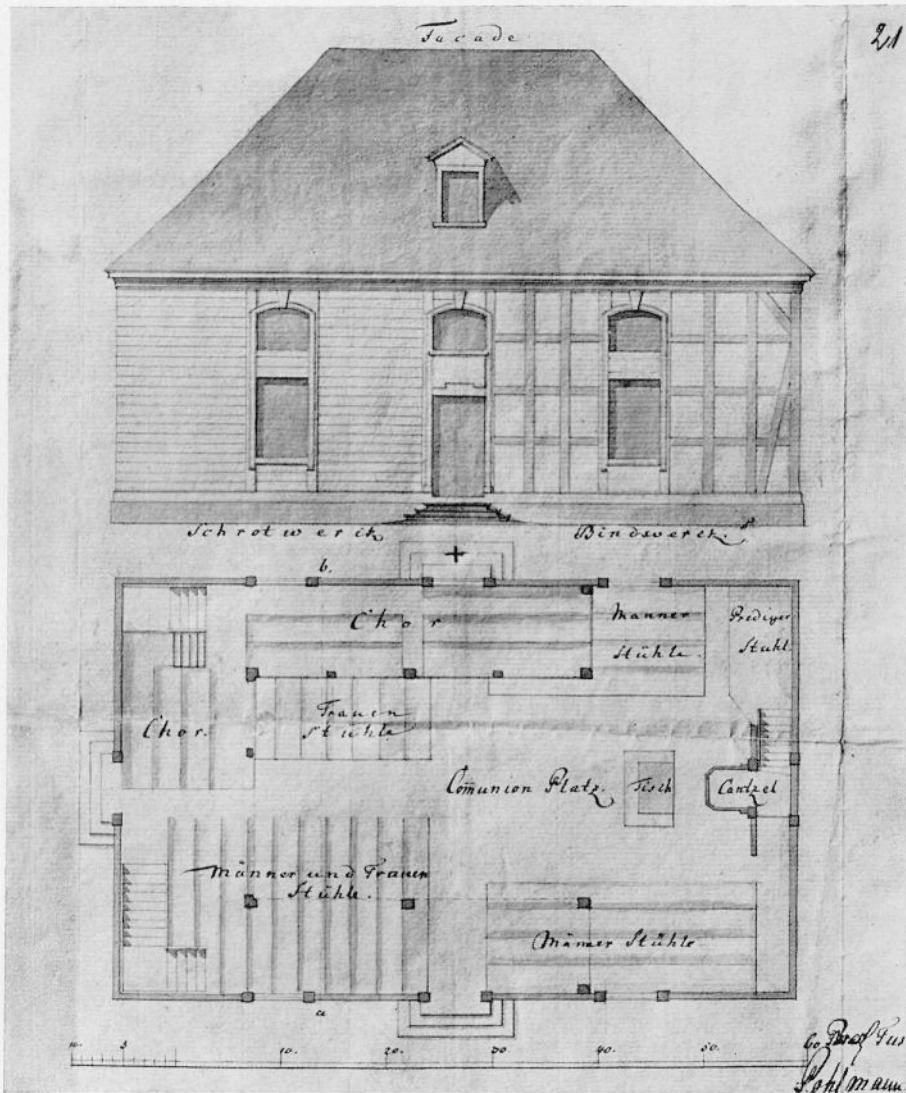 Facade
21
Schrotwerck
Bindswerck.
b.
Chor
Männer
Stühle.
Prediger
Stuhl.
Chor.
Frauen
Stühle
Com̅union Platz.
Tisch
Cantzel
Männer und Frauen
Stühle.
Männer Stühle
a
10. 5 10. 20. 30. 40. 50. 60
Pohlmann